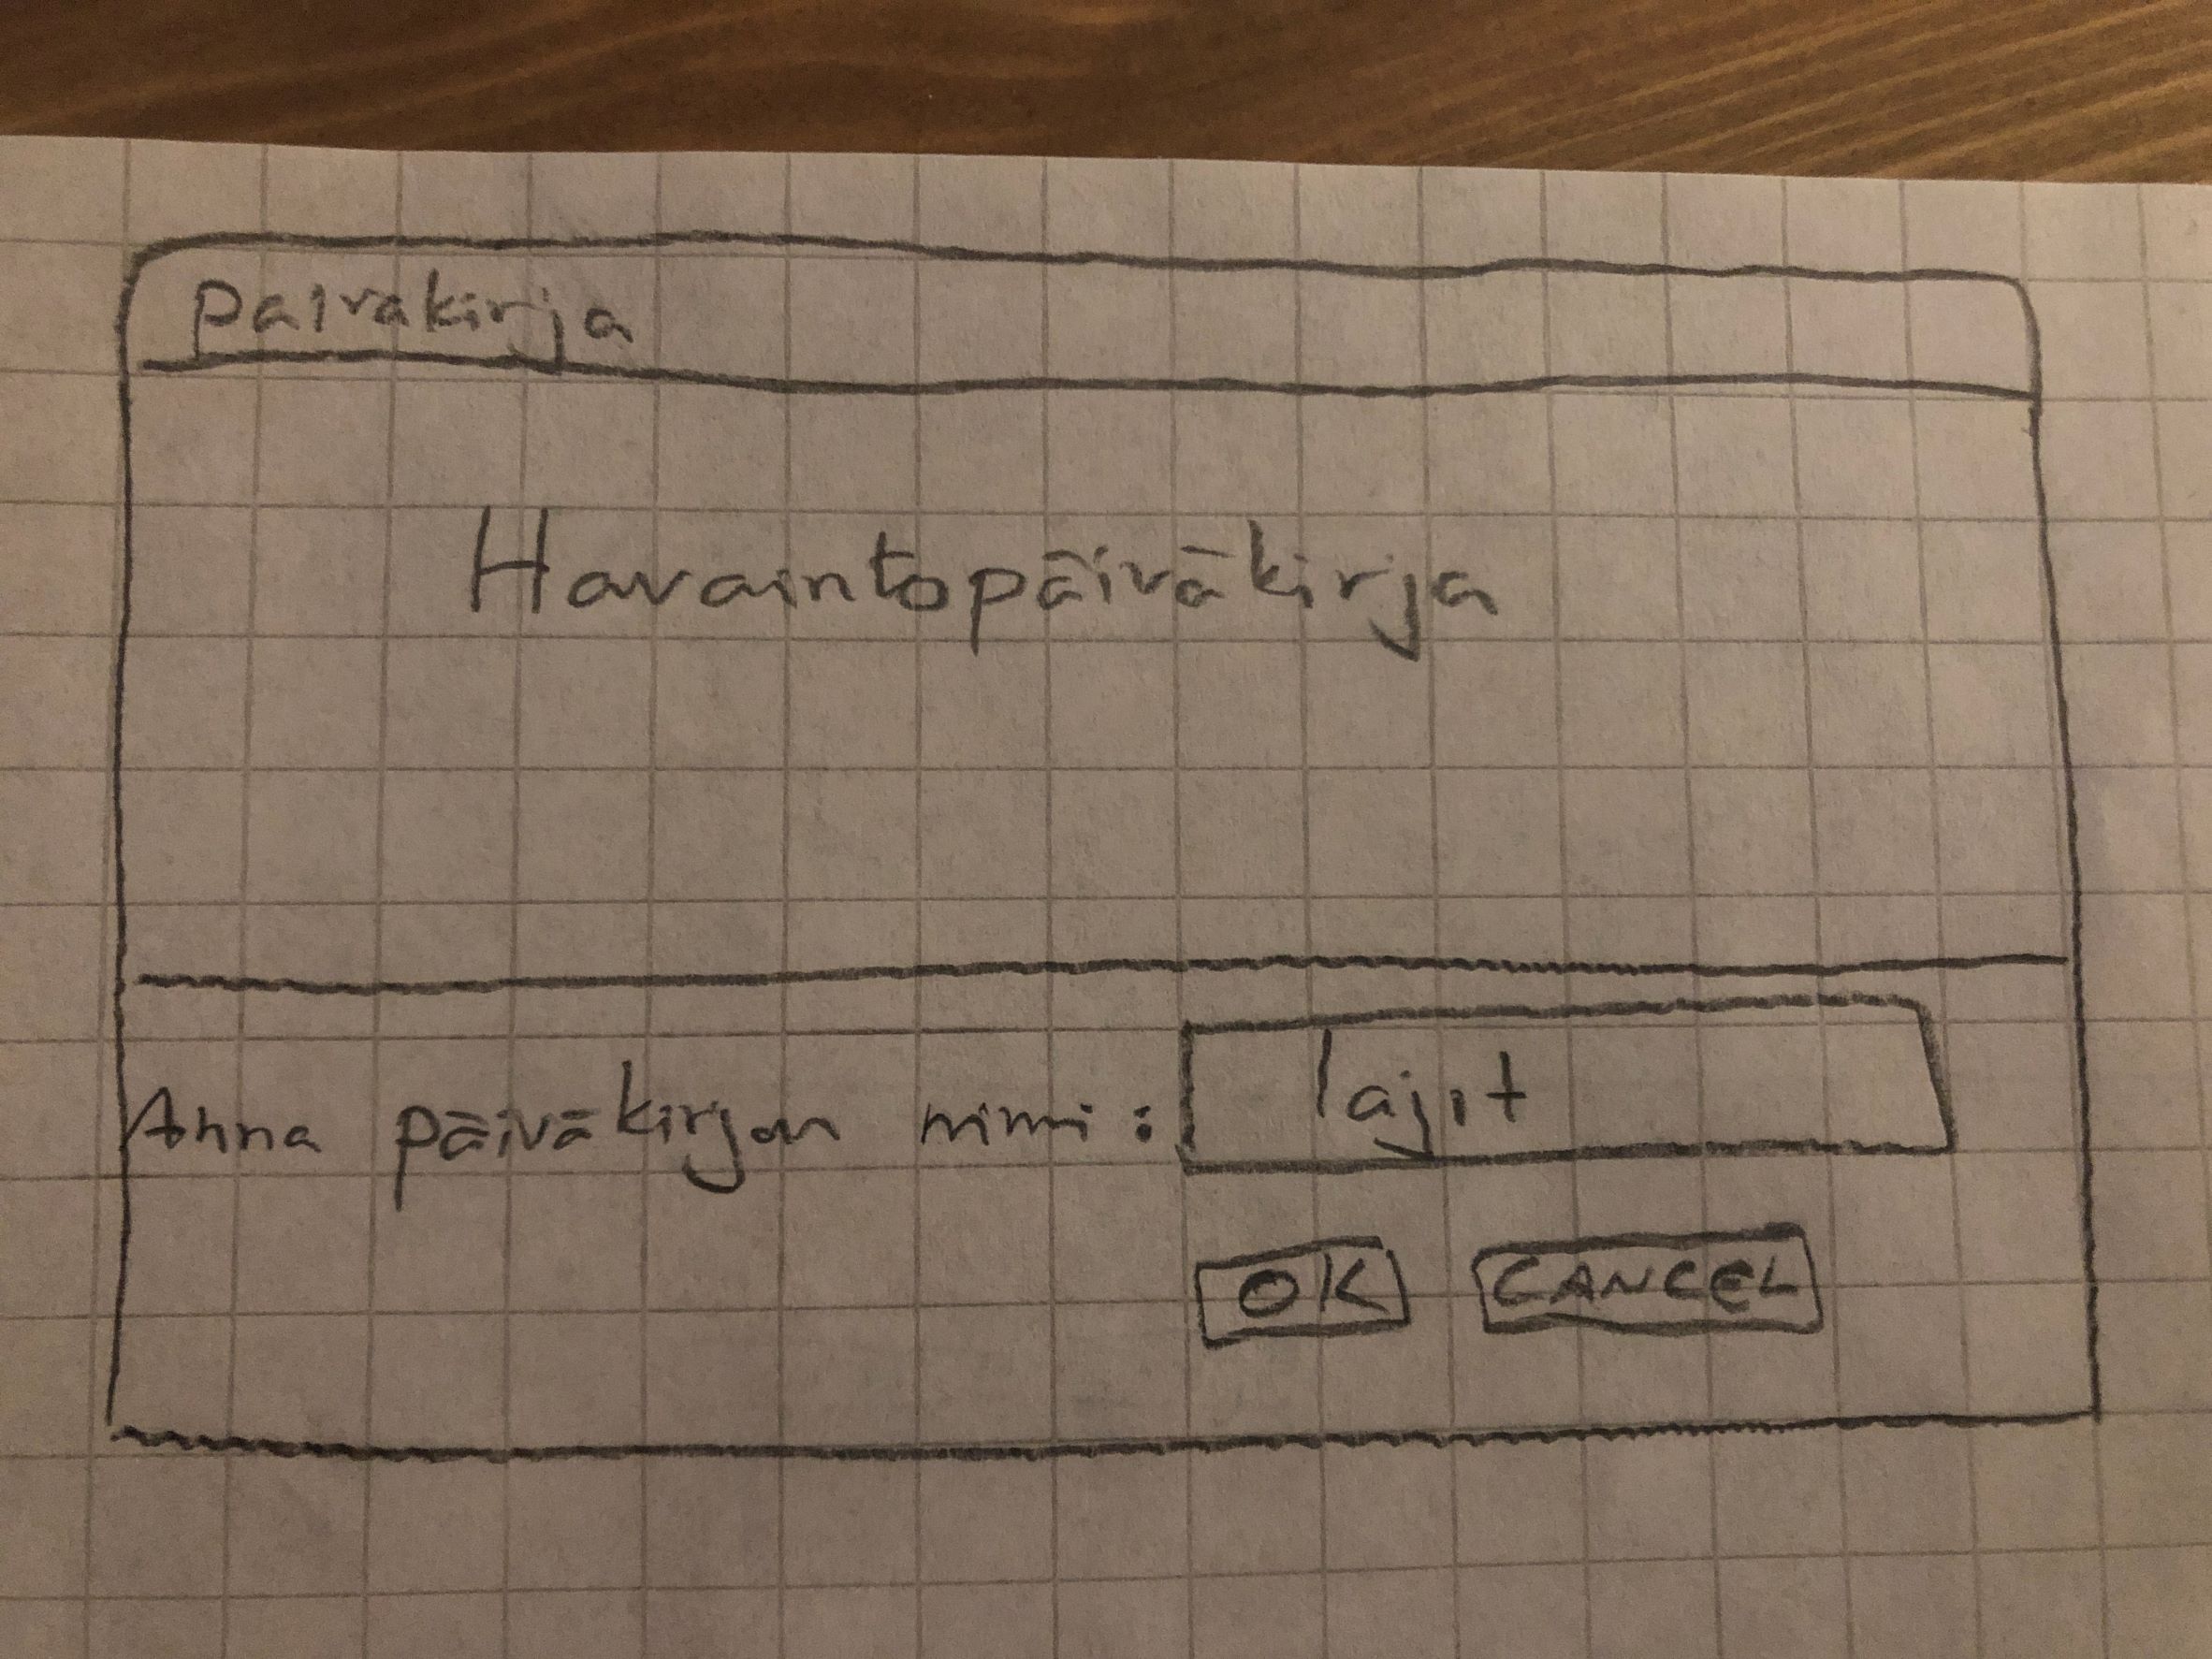 paivakirja
Havaintopäiväkirja
Anna päiväkirjan nimi: lajit
OK CANCEL